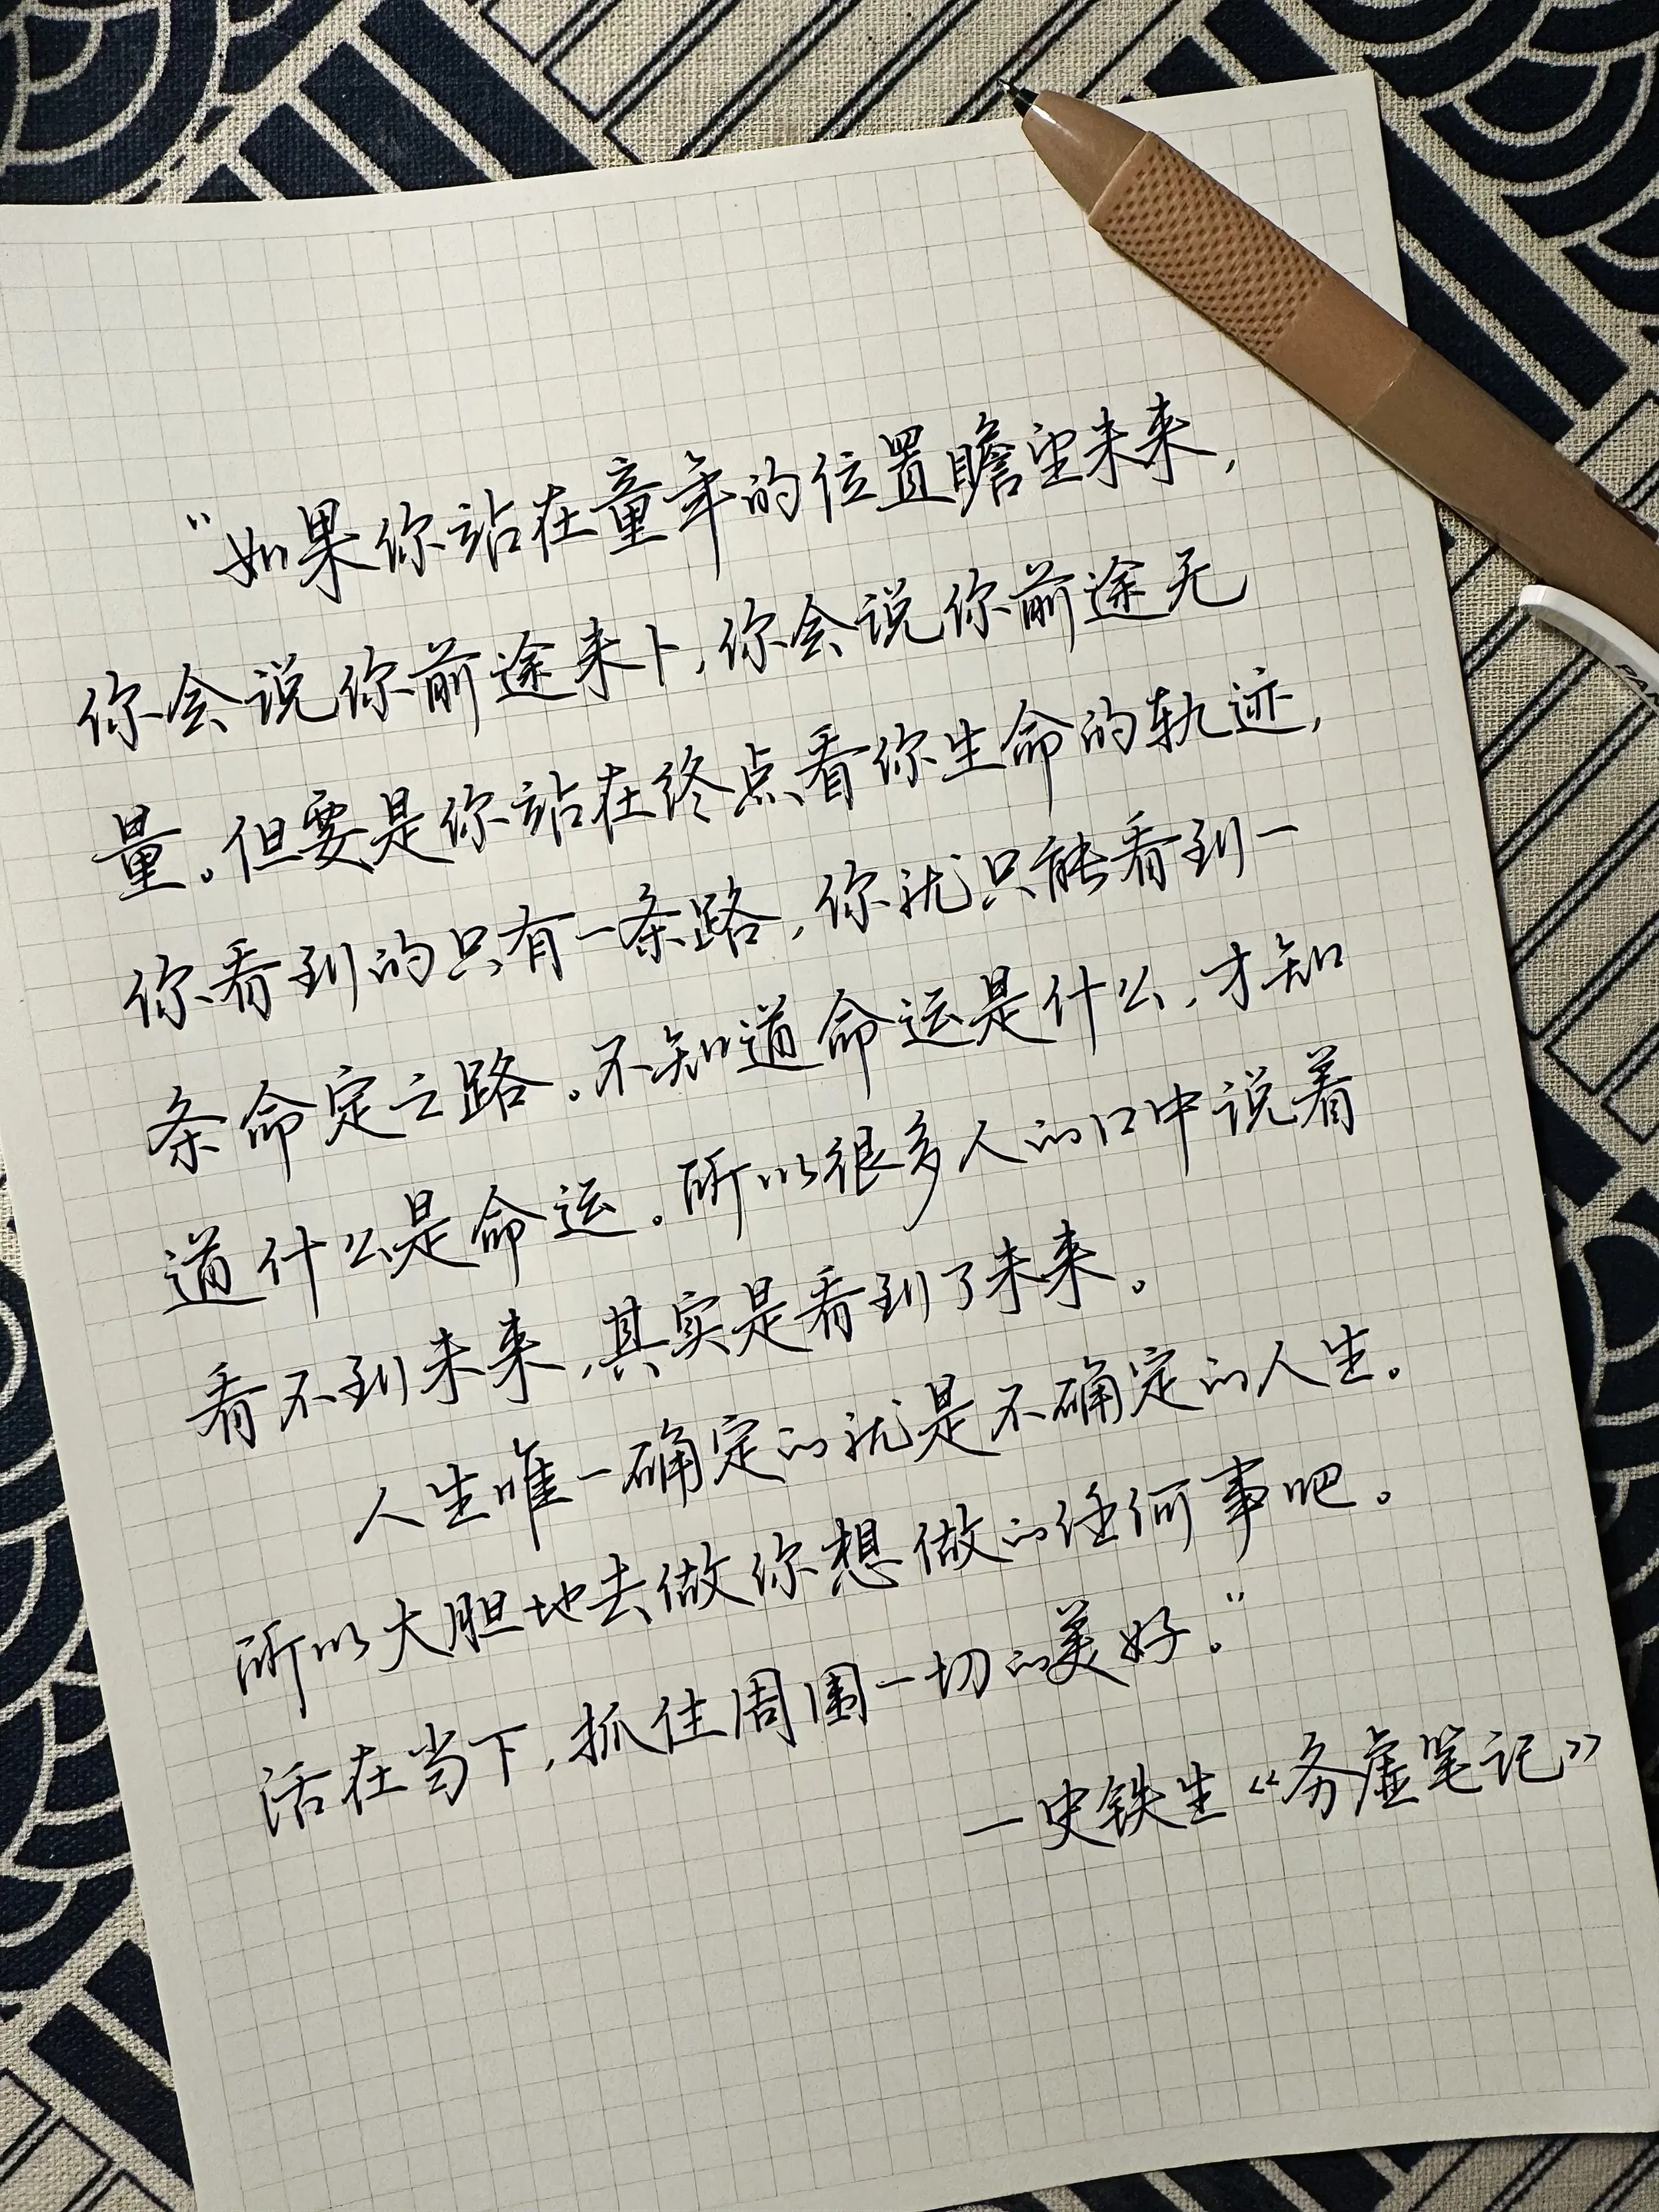 “如果你站在童年的位置瞻望未来，
你会说你前途未卜，你会说你前途无
量。但要是你站在终点看你生命的轨迹，
你看到的只有一条路，你就只能看到一
条命定之路。不知道命运是什么，才知
道什么是命运。所以很多人的口中说着
看不到未来，其实是看到了未来。
人生唯一确定的就是不确定的人生。
所以大胆地去做你想做的任何事吧。
活在当下，抓住周围一切的美好。”
一史铁生《务虚笔记》